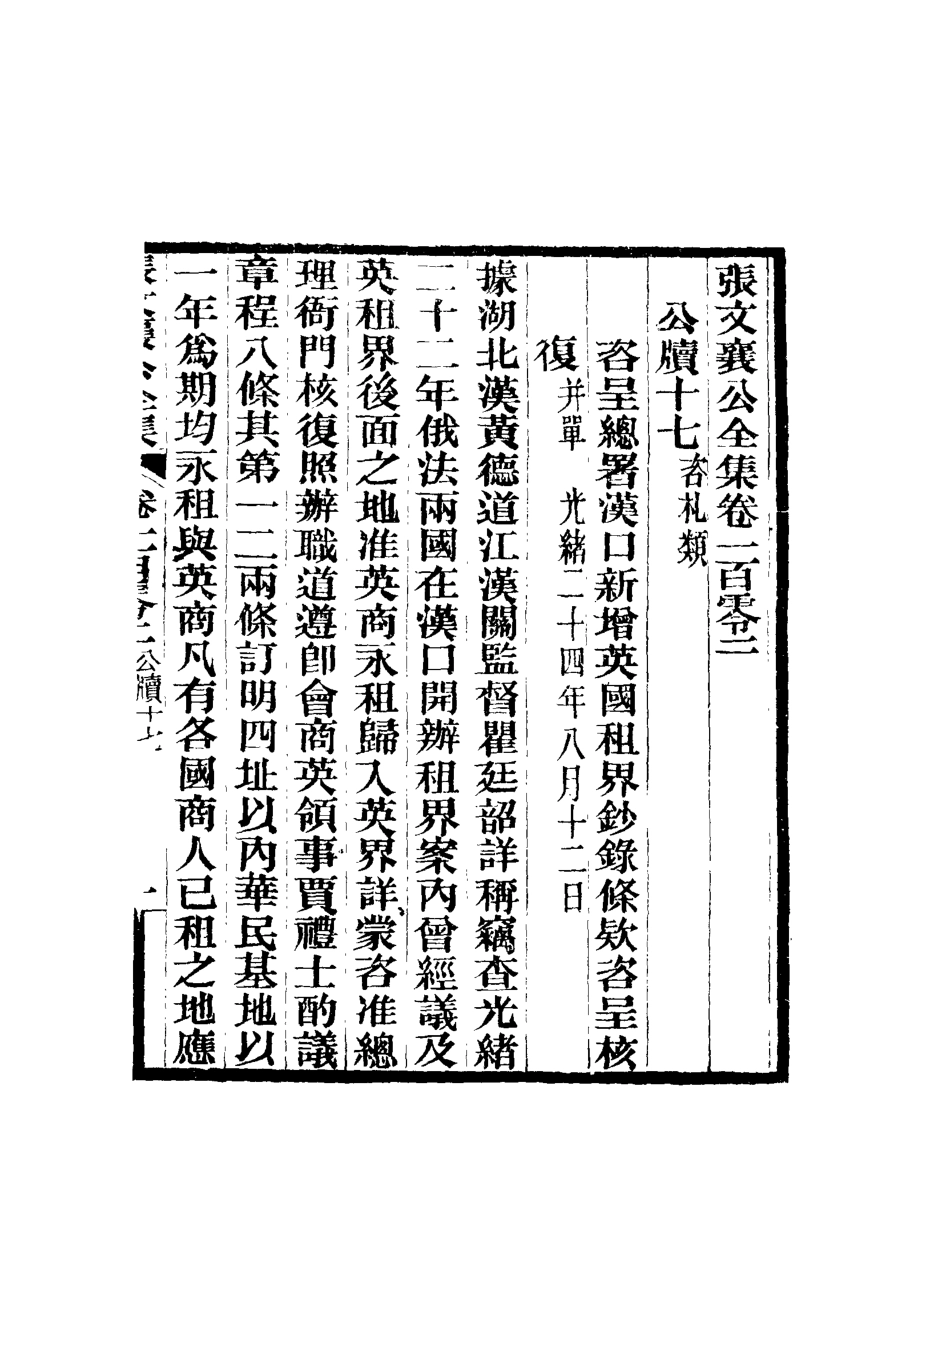 張文襄公全集卷一百零二
公牘十七咨札類
咨呈總署漢口新增英國租界鈔錄條欵咨呈核
復并單 光緒二十四年八月十二日
據湖北漢黃德道江漢關監督瞿廷韶詳稱竊查光緒
二十二年俄法兩國在漢口開辦租界案內曾經議及
英租界後面之地准英商永租歸入英界詳蒙咨准總
理衙門核復照辦職道遵卽會商英領事賈禮士酌議
章程八條其第一二兩條訂明四址以內華民基地以
一年爲期均永租與英商凡有各國商人已租之地應
張文襄公全集 卷一百零二 公牘十七 一